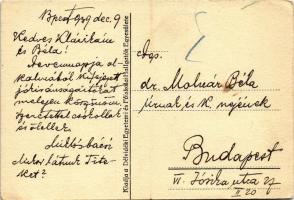 Bpest 919 dec. 9
Kedves Klárikám
és Béla!
Devecnapja al-
kalmából kifejezett
jókívánságaitokat
melyen köszönöm
szeretettel csókollak
és ölellek
Miklósbácsi
Mikor látunk Tite-
ket?
Kiadja a Délvidéki Egyetemi és Főiskolai Hallgatók Egyesülete
dr. Molnár Béla
úrnak és K. nejének
Budapest
VI. Jósika utca 27
II. 20